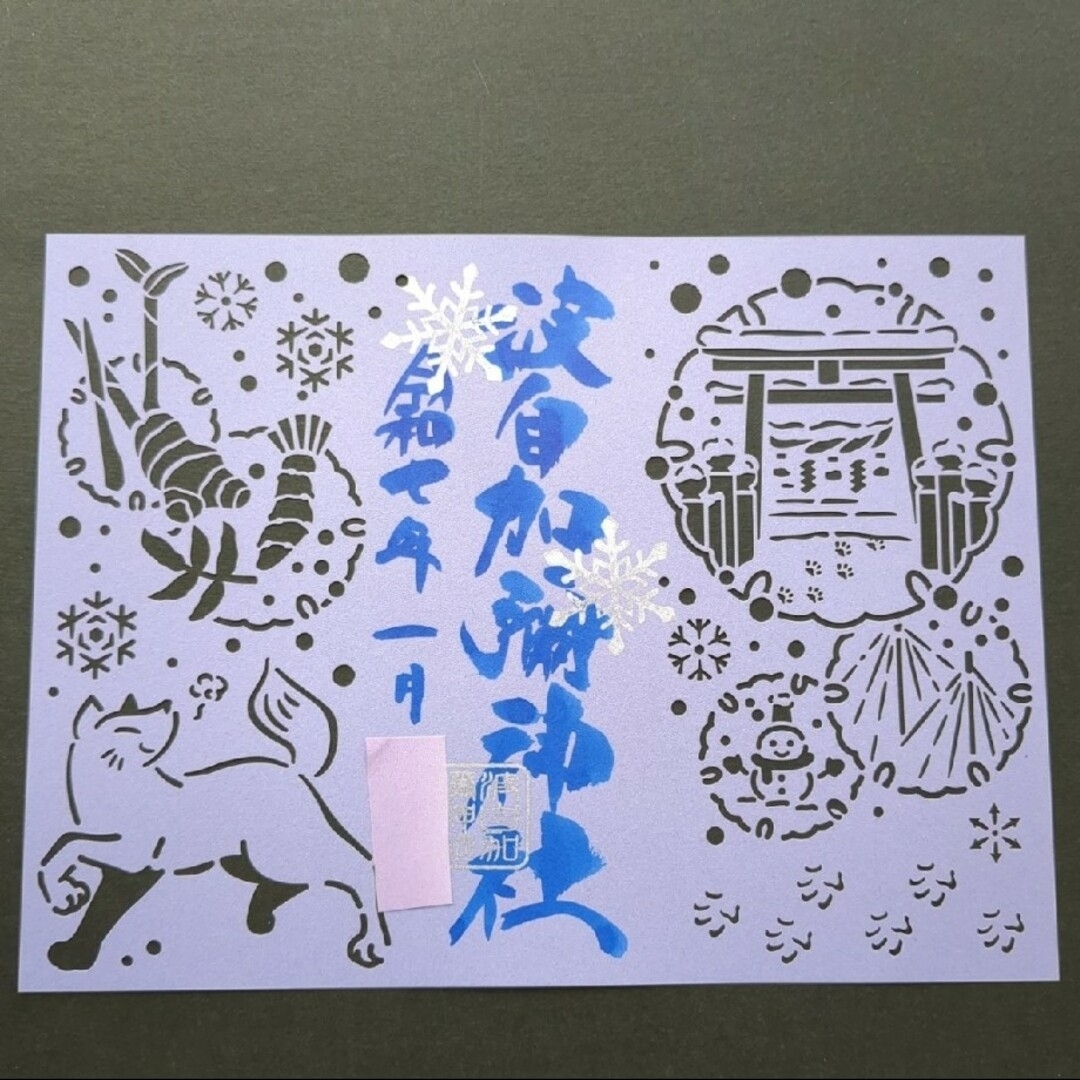 波自加彌神社
令和七年一月